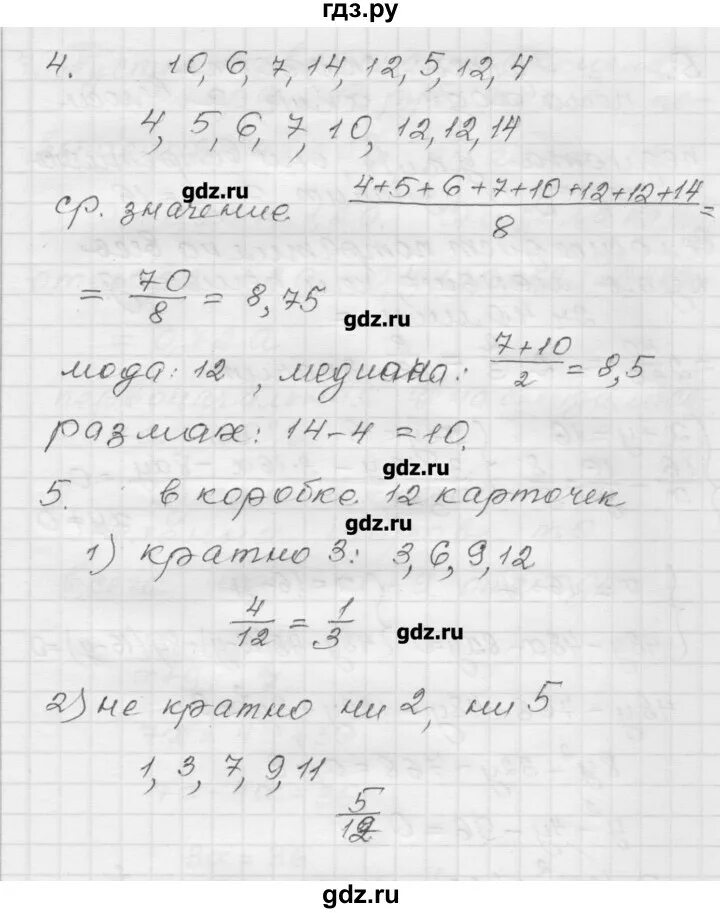 гдз.ру
4. 10, 6, 7, 14, 12, 5, 12, 4
4, 5, 6, 7, 10, 12, 12, 14
gdz.ru
ср. значение (4+5+6+7+10+12+12+14)/8 =
= 70/8 = 8,75
gdz.ru
мода: 12, медиана: (7+10)/2 = 8,5
размах: 14-4=10.
gdz.ru
5. в коробке 12 карточек
gdz.ru
1) кратно 3: 3, 6, 9, 12
4/12 = 1/3
gdz.ru
2) не кратно ни 2, ни 5
1, 3, 7, 9, 11
5/12
gdz.ru